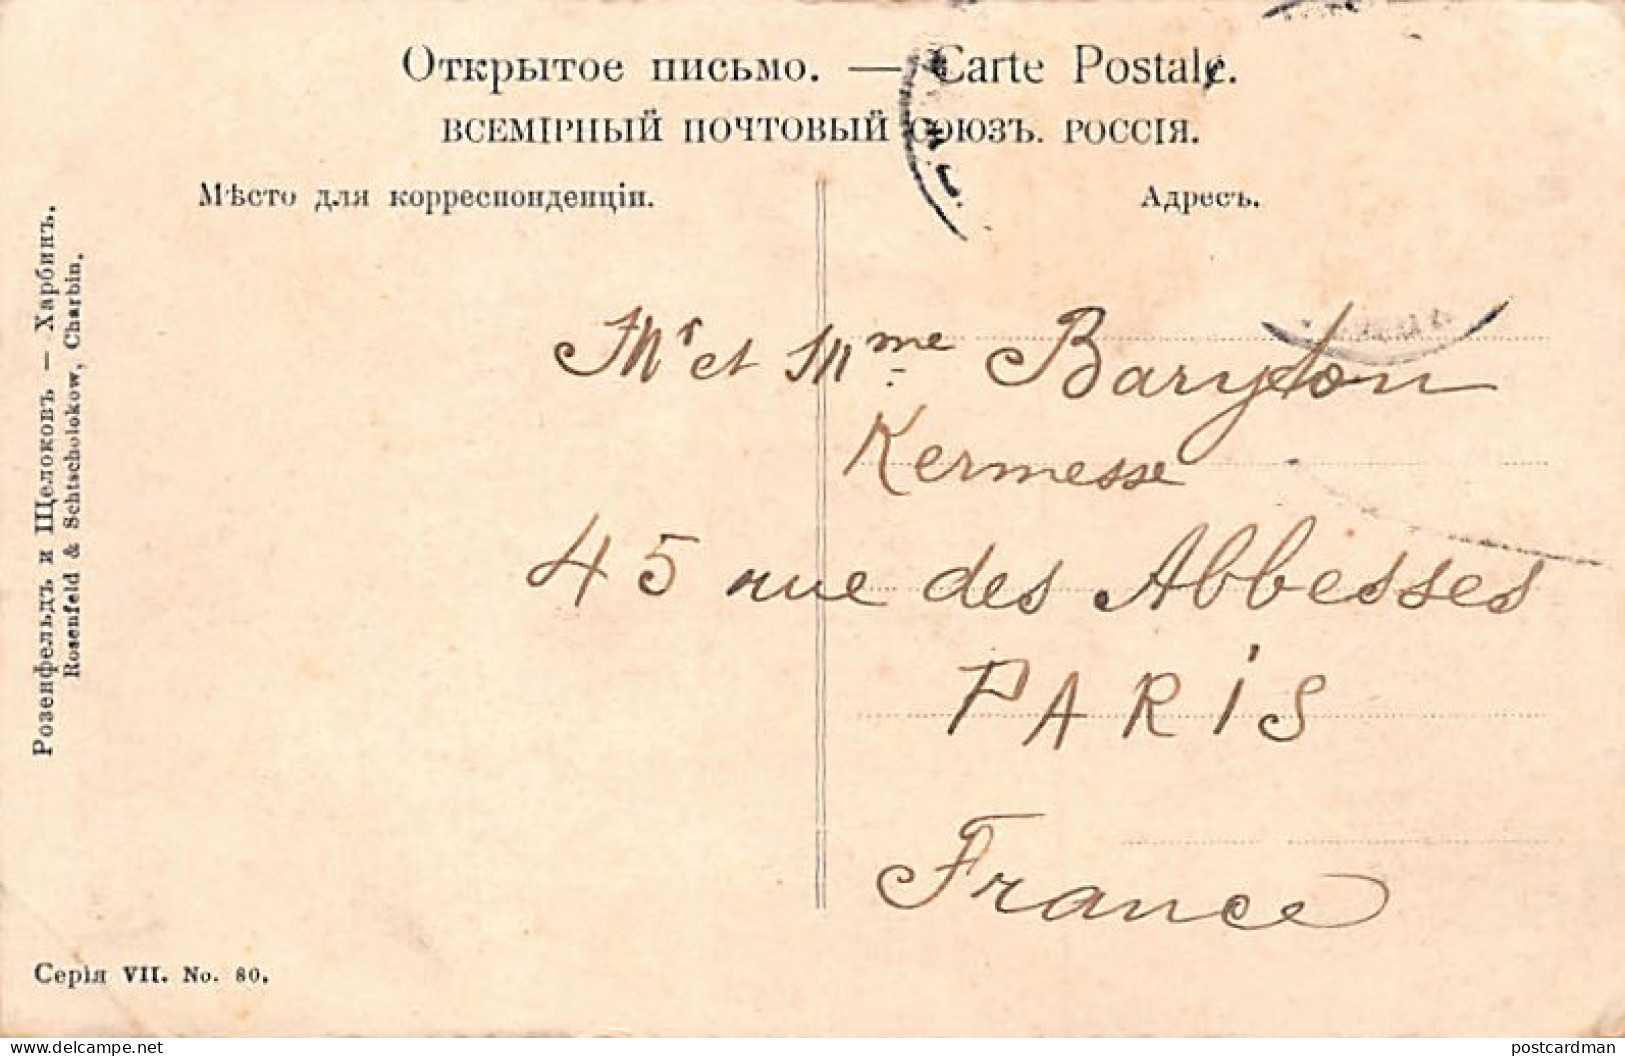 Открытое письмо. — Carte Postale.
ВСЕМІРНЫЙ ПОЧТОВЫЙ СОЮЗЪ. РОССІЯ.
Мѣсто для корреспонденціи.
Адресъ.
Розенфельдъ и Щелоковъ — Харбинъ.
Rosenfeld & Schtscholokow, Charbin.
Mr et Mme Baryton
Kermesse
45 rue des Abbesses
PARIS
France
Серія VII. No. 80.
Delcampe.net
postcardman